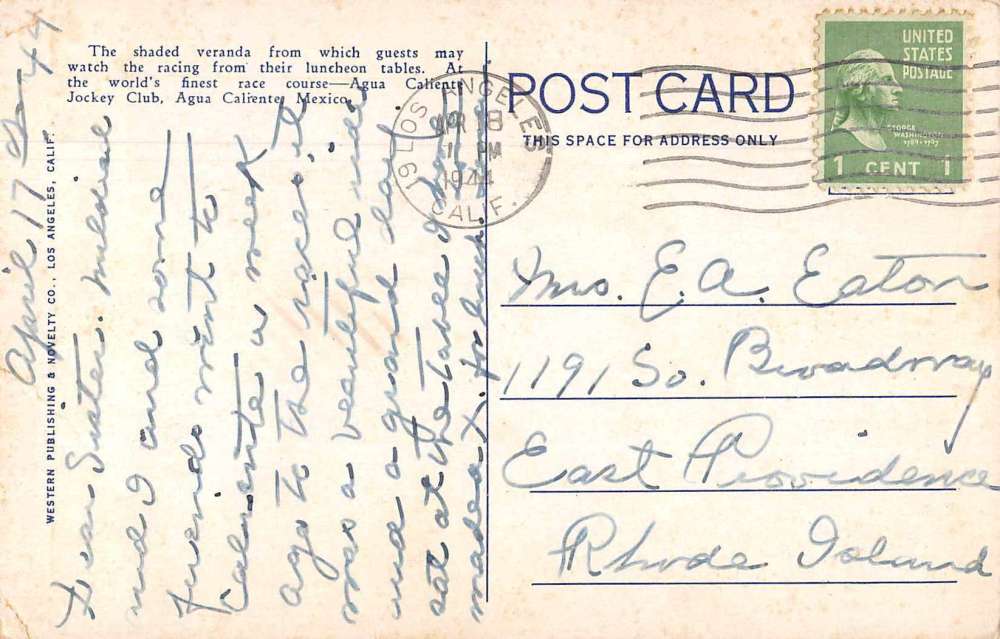 The shaded veranda from which guests may
watch the racing from their luncheon tables. At
the world's finest race course—Agua Caliente
Jockey Club, Agua Caliente, Mexico.
WESTERN PUBLISHING & NOVELTY CO., LOS ANGELES, CALIF.
April 17 - 44
Dear Sister. Mildred
and I and some
friends went to
Caliente a week
ago to the races, it
was a beautiful ride
and a grand day
sat at the table I have
made a X. for lunch.
POST CARD
THIS SPACE FOR ADDRESS ONLY
LOS ANGELES
19
APR 18
PM
1944
CALIF.
UNITED
STATES
POSTAGE
GEORGE
WASHINGTON
1789-1797
1 CENT 1
Mrs. E. A. Eaton
1191 So. Broadway
East Providence
Rhode Island